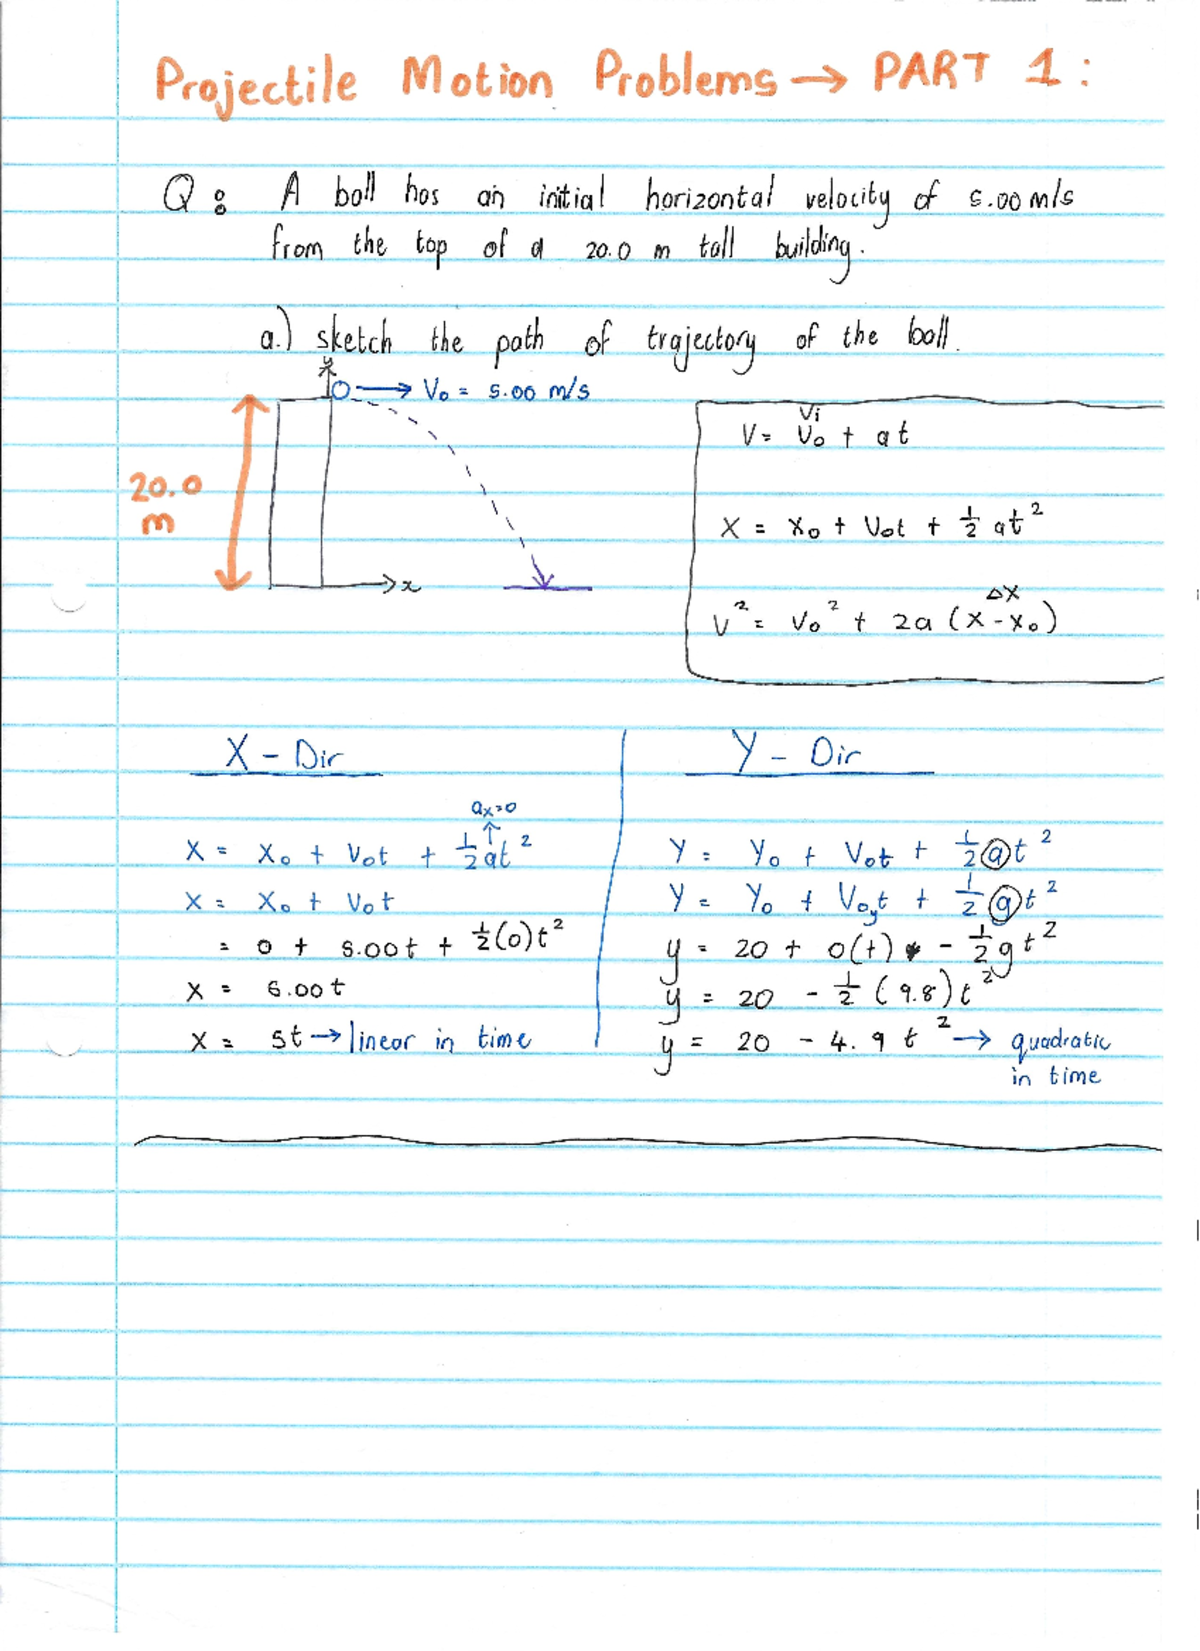 Projectile Motion Problems → PART 1:
Q: A ball has an initial horizontal velocity of 5.00 m/s
from the top of a 20.0 m tall building.
a.) sketch the path of trajectory of the ball.
y
→ V₀ = 5.00 m/s
20.0
m
x
Vi
V = V₀ + at
X = X₀ + V₀t + ½ at²
ΔX
V² = V₀² + 2a (X - X₀)
X - Dir
aₓ=0
↑
X = X₀ + V₀t + ½at²
X = X₀ + V₀t
= 0 + 5.00t + ½(0)t²
X = 5.00t
X = 5t → linear in time
Y - Dir
Y = Y₀ + V₀t + ½at²
Y = Y₀ + V₀yt + ½gt²
y = 20 + 0(t) - ½gt²
y = 20 - ½ (9.8)t²
y = 20 - 4.9 t² → quadratic
in time